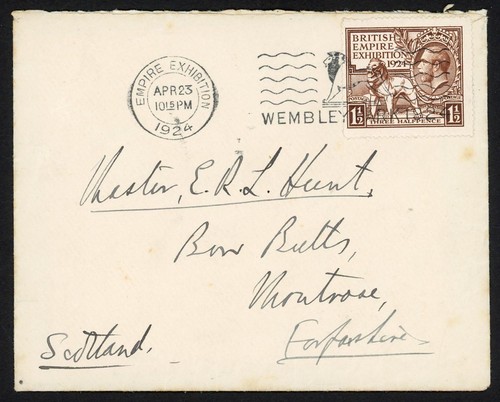 EMPIRE EXHIBITION
APR 23
10 15 PM
1924
WEMBLEY PARK
BRITISH
EMPIRE
EXHIBITION
1924
POSTAGE
1½ 1½
THREE HALFPENCE
Master, E. R. L. Hunt,
Bow Butts,
Montrose,
Forfarshire
Scotland.